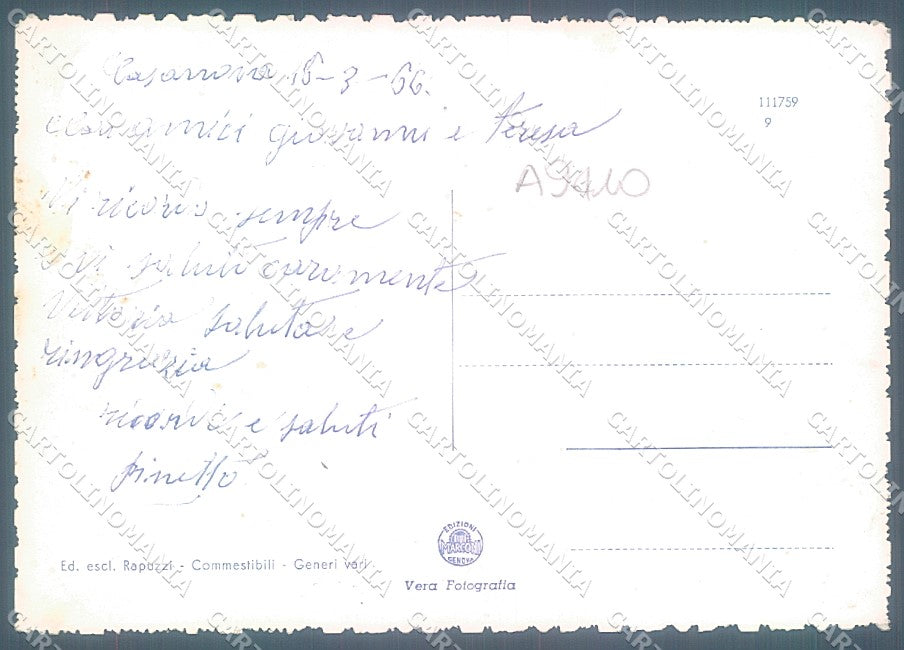 Casanova 15-3-66.
cari amici giovanni e Teresa
Vi ricordo sempre
vi saluto caramente
Vittorio salutare
ringrazia
ricordi e saluti
Pinetto
111759
9
A9710
EDIZIONI
MARCONI
GENOVA
Ed. escl. Rapuzzi - Commestibili - Generi vari
Vera Fotografia
CARTOLINOMANIA